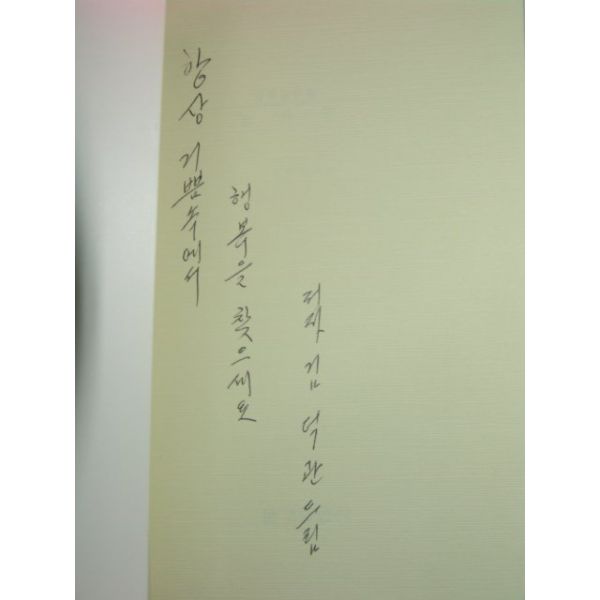 항상 기쁨속에서
행복을 찾으세요
저자 김덕관 드림